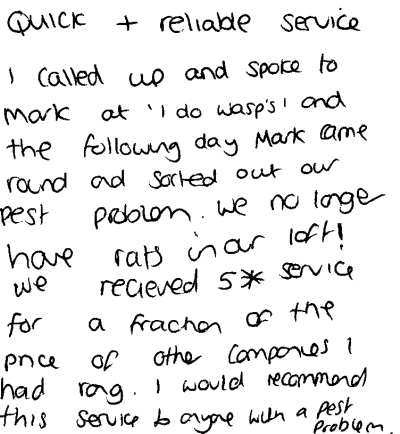 Quick + reliable service
I called up and spoke to
Mark at 'I do wasp's' and
the following day Mark came
round and sorted out our
pest problem. We no longer
have rats in our loft!
we recieved 5* service
for a fraction of the
price of other companies I
had rang. I would recommend
this service to anyone with a pest
problem.